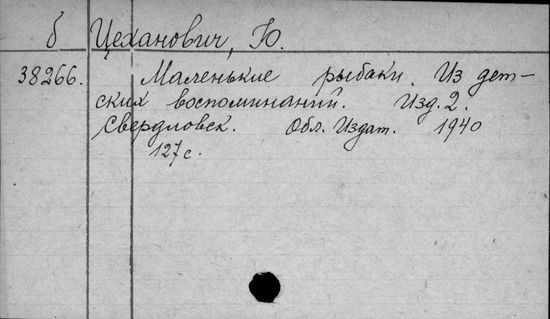 б Цеханович, Ю.
38266. Маленькие рыбаки. Из дет-
ских воспоминаний. Изд. 2.
Свердловск. Обл. Издат. 1940
127 с.